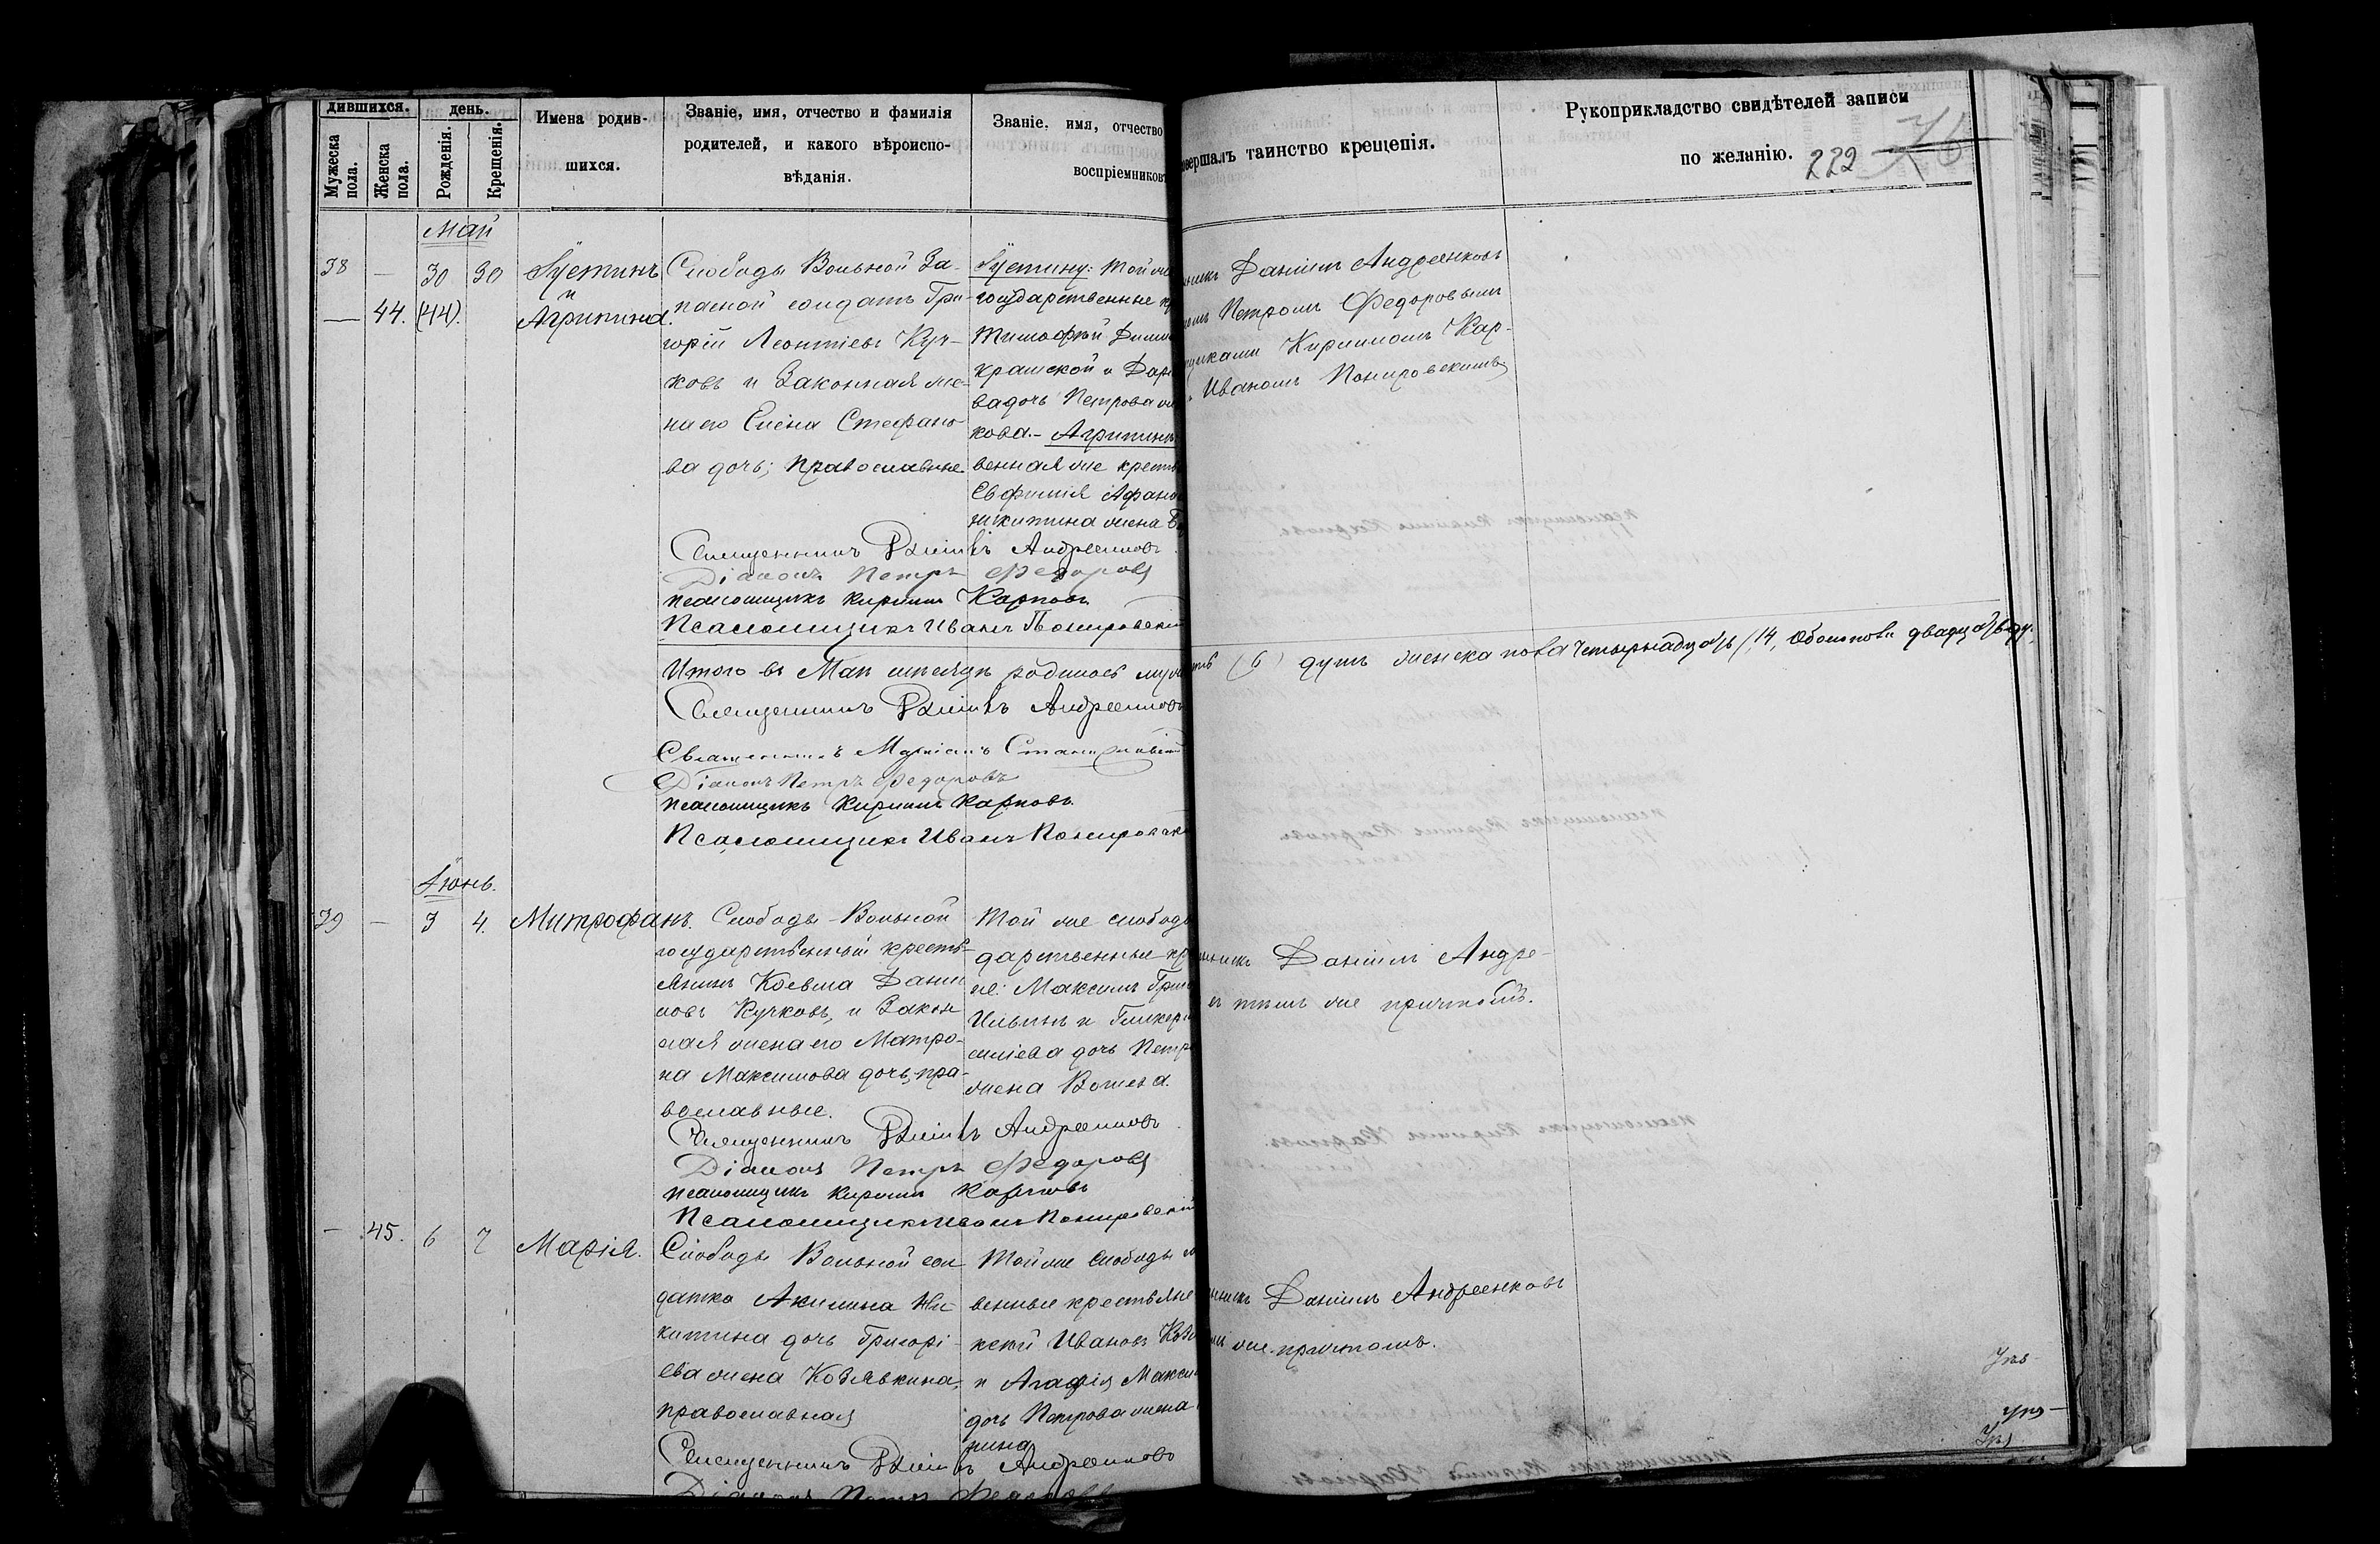 дившихся.
день.
Мужеска пола.
Женска пола.
Рожденія.
Крещенія.
Имена родив-
шихся.
Званіе, имя, отчество и фамилія
родителей, и какого вѣроиспо-
вѣданія.
Званіе, имя, отчество
воспріемниковъ
овершалъ таинство крещенія.
Рукоприкладство свидѣтелей записи
по желанію.
222
76
Май
38 — 30 30 Іустинъ
и
— 44. (44). Агрипина.
Слободы Вольной За-
пасной солдатъ Гри-
горій Леонтіевъ Куч-
ковъ и Законная же-
на его Елена Стефано-
ва дочь; православные
Іустину: Той же
государственные кр
Тимофѣй Дими
крамской и Дарі
ва дочь Петрова
кова. – Агрипинѣ
венная же кресть
Евфимія Афана
никитина жена
никъ Даніилъ Андреенковъ
номъ Петромъ Федоровымъ
щиками Кириломъ Кар-
Иваномъ Понировскимъ
Священникъ Даніилъ Андреенковъ
Діаконъ Петръ Федоровъ
псаломщикъ Кирилъ Карповъ
Псаломщикъ Иванъ Понировскій
Итого въ Маѣ мѣсяцѣ родилось муж
(6) душъ женска пола четырнадцать (14, Обоихъ пола двадцать д.
Священникъ Даніилъ Андреенковъ
Священникъ
Діаконъ Петръ Федоровъ
псаломщикъ Кирилъ Карповъ.
Псаломщикъ Иванъ Понировскі
Іюнь.
39 — 3 4. Митрофанъ.
Слободы Вольной
государственный кресть-
янинъ Косьма Дани
ловъ Кучковъ, и Закон
ная жена его Матро-
на Максимова дочь, пра-
вославные.
Той же слободы
дарственные кр
не: Максимъ Григо
Ильинъ и Гликері
силіева дочь Петр
жена
никъ Даніилъ Андре-
съ тѣмъ же причтомъ.
Священникъ Даніилъ Андреенковъ
Діаконъ Петръ Федоровъ
псаломщикъ Кирилъ Карповъ
Псаломщикъ Иванъ Понировскій
— 45. 6 7 Марія.
Слободы Вольной сол
датка Акилина Ни
китина дочь Григорі-
ева жена Козявкина,
православная
Той же слободы
венные крестьяне
Ивановъ
и Агафія Макси
дочь Петрова жена
кина
никъ Даніилъ Андреенковъ
же причтомъ.
Священникъ Даніилъ Андреенковъ
Діаконъ Петръ Федоровъ